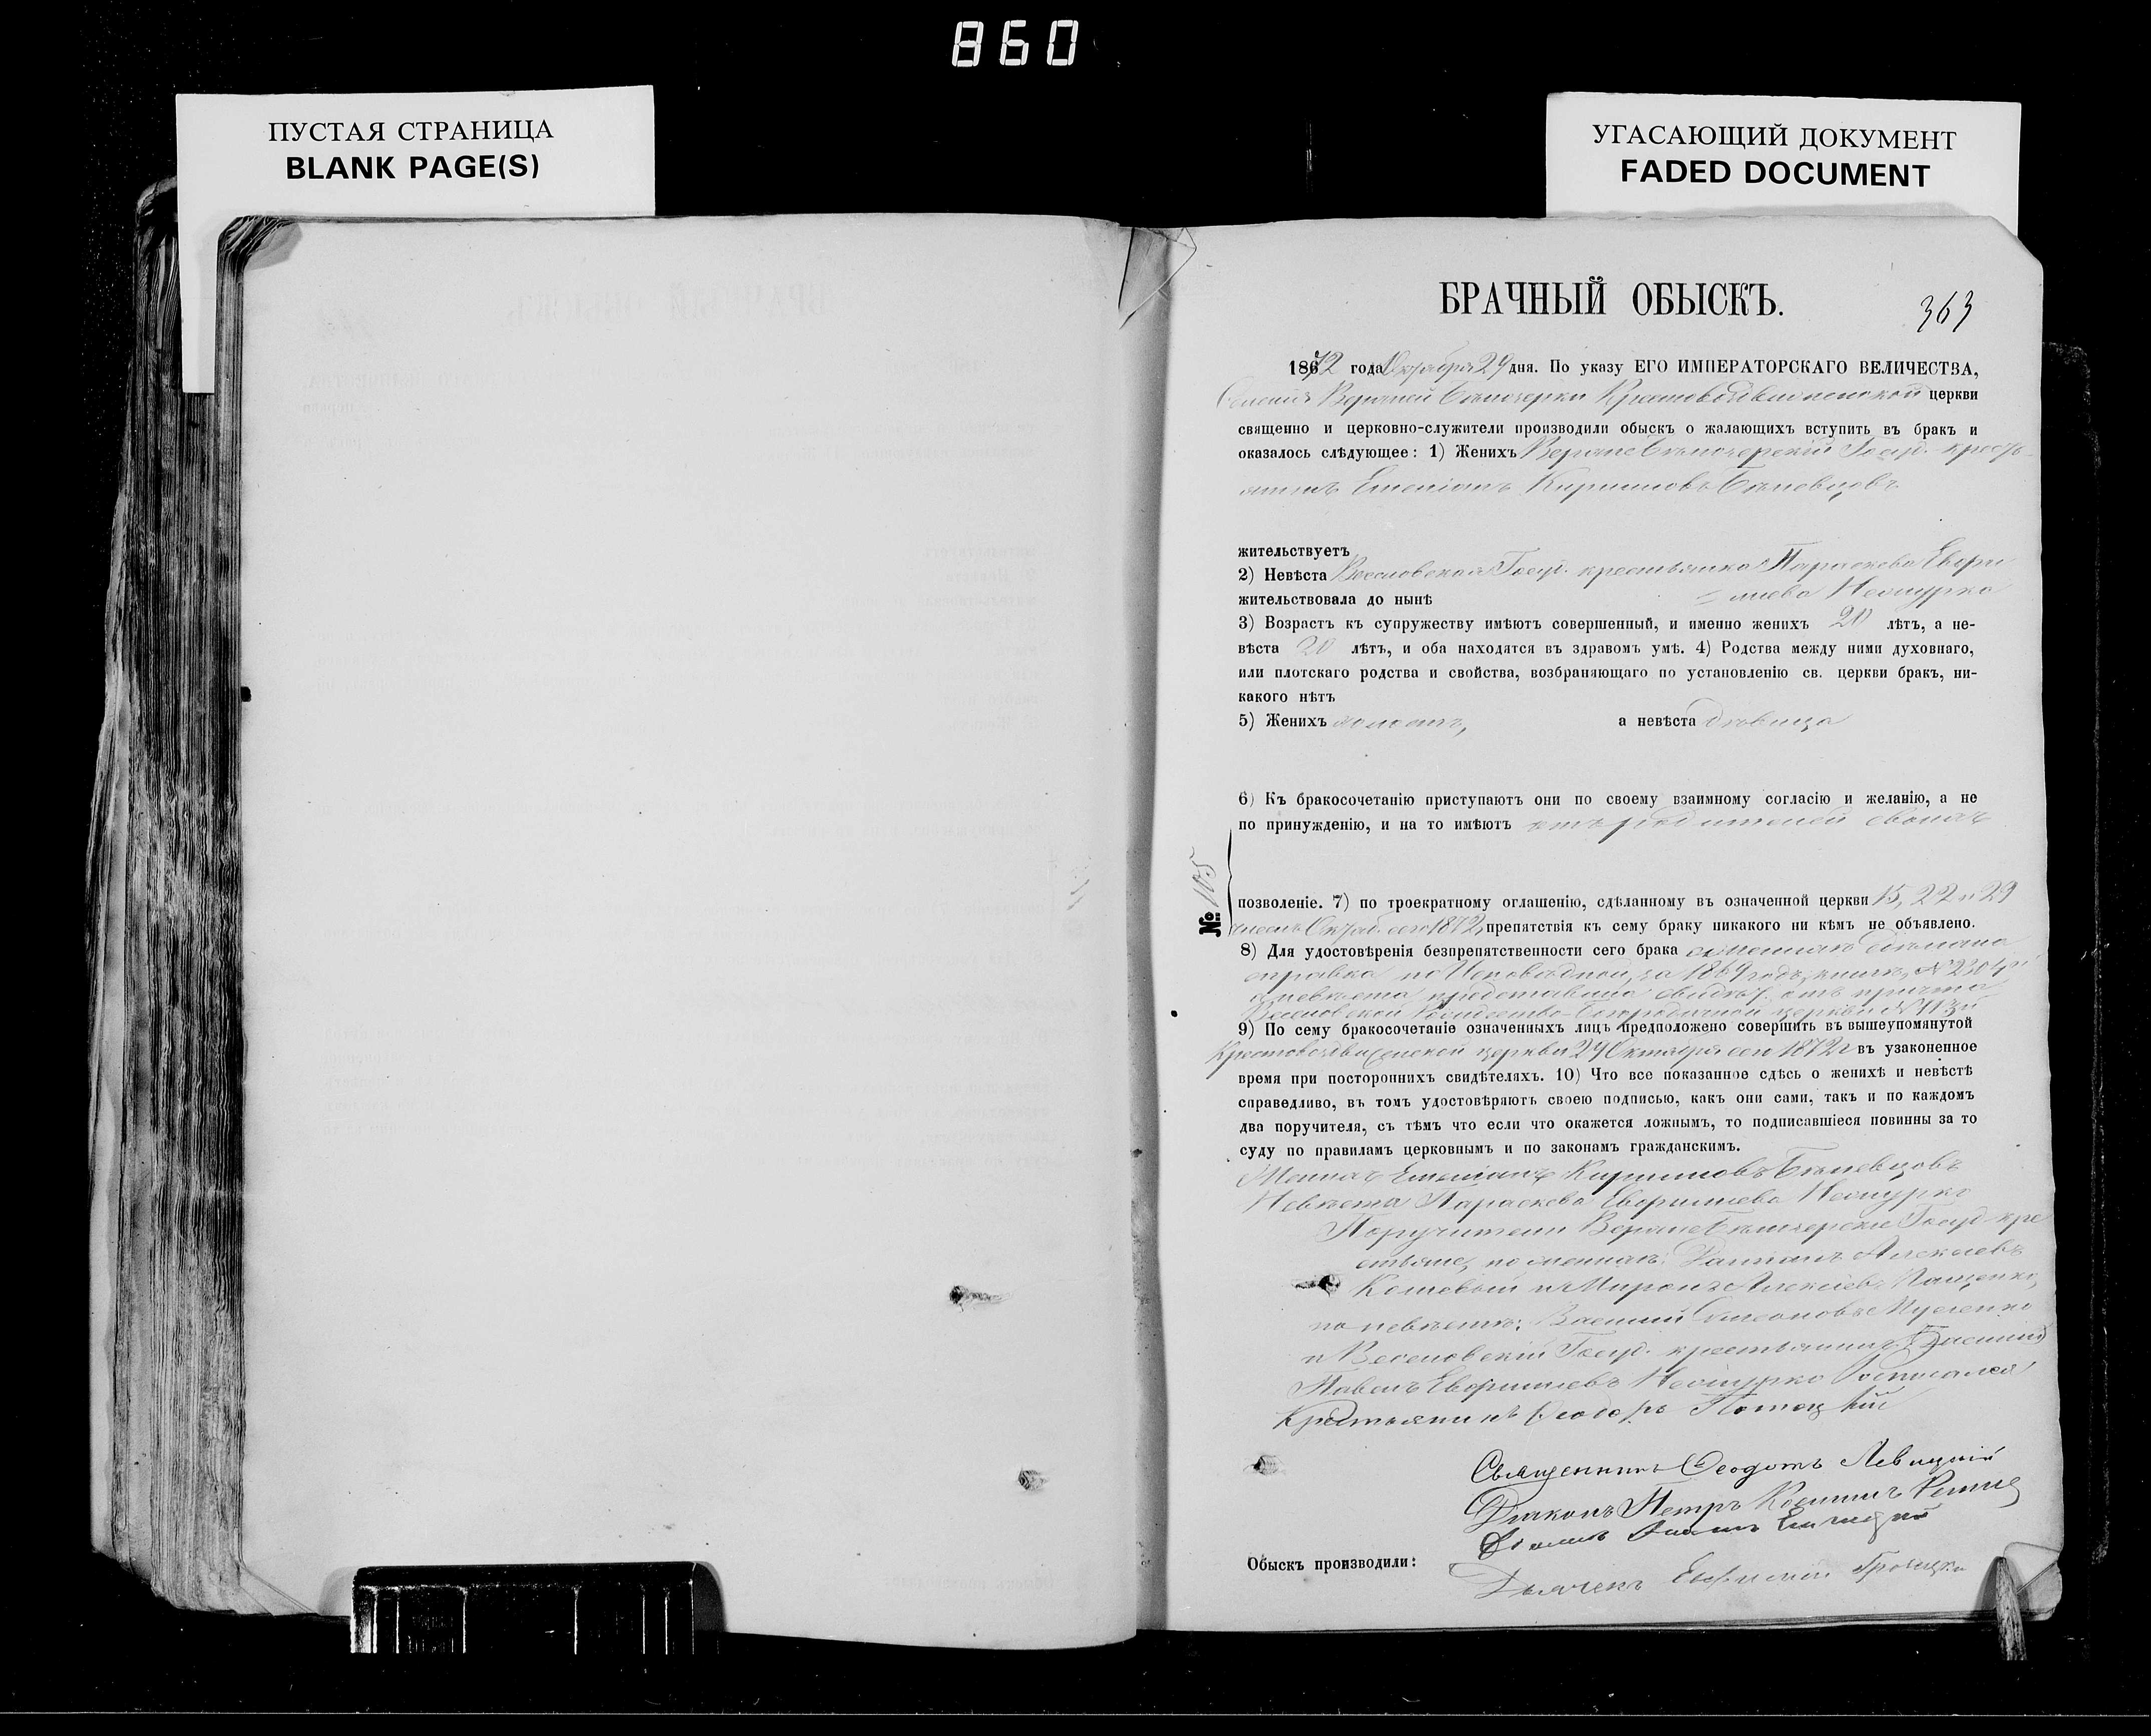 860
ПУСТАЯ СТРАНИЦА
BLANK PAGE(S)
УГАСАЮЩИЙ ДОКУМЕНТ
FADED DOCUMENT
БРАЧНЫЙ ОБЫСКЪ.
363
1872 года Октября 29 дня. По указу ЕГО ИМПЕРАТОРСКАГО ВЕЛИЧЕСТВА,
Верхней Бѣлозерки Крестовоздвиженской церкви
священно и церковно-служители производили обыскъ о жалающихъ вступить въ бракъ и
оказалось слѣдующее: 1) Женихъ Верхнебѣлозерскій Госуд. кресть-
янинъ Емеліанъ Кириловъ
жительствуетъ
2) Невѣста Веселовская Госуд. крестьянка Параскева
жительствовала до нынѣ
3) Возрастъ къ супружеству имѣютъ совершенный, и именно женихъ 20 лѣтъ, а не-
вѣста 20 лѣтъ, и оба находятся въ здравомъ умѣ. 4) Родства между ними духовнаго,
или плотскаго родства и свойства, возбраняющаго по установленію св. церкви бракъ, ни-
какого нѣтъ
5) Женихъ холостъ, а невѣста дѣвица
6) Къ бракосочетанію приступаютъ они по своему взаимному согласію и желанію, а не
по принужденію, и на то имѣютъ отъ родителей своихъ
№ 105
позволеніе. 7) по троекратному оглашенію, сдѣланному въ означенной церкви 15, 22 и 29
Октяб. сего 1872 препятствія къ сему браку никакого ни кѣмъ не объявлено.
8) Для удостовѣренія безпрепятственности сего брака о женихѣ сдѣлана
справка по Исповѣдной, за 1869 годъ, книгѣ,
а невѣста представила свидѣт. отъ причта
Веселовской Рождество-Богородичной церкви
9) По сему бракосочетаніе означенныхъ лицъ предположено совершить въ вышеупомянутой
Крестовоздвиженской церкви 29 Октября сего 1872 г. въ узаконенное
время при постороннихъ свидѣтеляхъ. 10) Что все показанное сдѣсь о женихѣ и невѣстѣ
справедливо, въ томъ удостовѣряютъ своею подписью, какъ они сами, такъ и по каждомъ
два поручителя, съ тѣмъ что если что окажется ложнымъ, то подписавшіеся повинны за то
суду по правиламъ церковнымъ и по законамъ гражданскимъ.
Женихъ Емеліанъ Кириловъ
Невѣста Параскева
Поручители Верхнебѣлозерскіе Госуд. кре
стьяне, по женихѣ:
и Миронъ Алексѣевъ
по невѣстѣ: Василій
и Веселовскій Госуд. крестьянинъ
Павелъ
Крестьянинъ Феодоръ
Священникъ Феодотъ Левицкій
Діаконъ Петръ
Дьячекъ
Обыскъ производили: